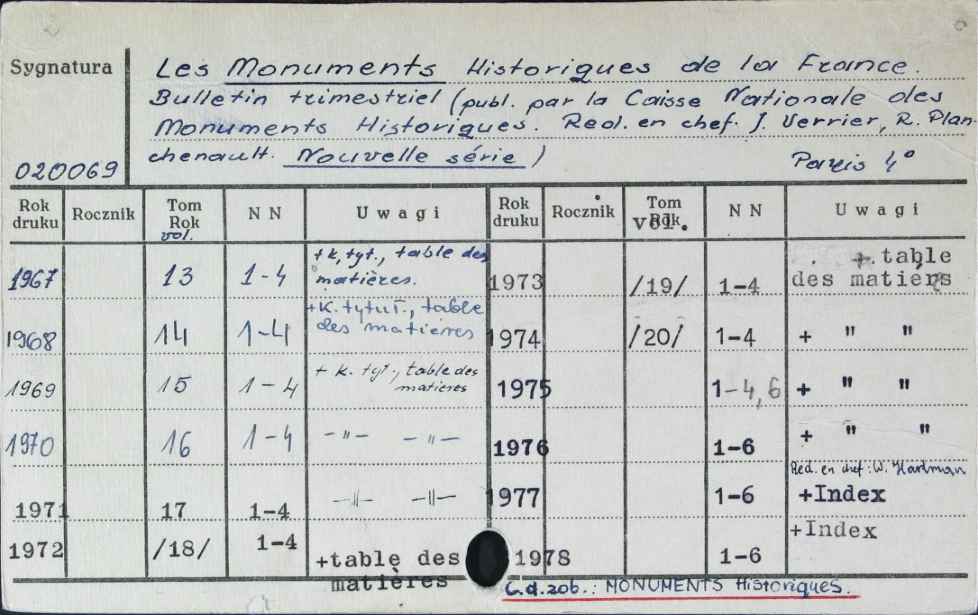 Sygnatura
020069
Les Monuments Historiques de la France.
Bulletin trimestriel (publ. par la Caisse Nationale des
Monuments Historiques. Red. en chef. J. Verrier, R. Plan-
chenault. Nouvelle série)
Paris 4°
Rok druku Rocznik Tom Rok vol. N N Uwagi Rok druku Rocznik Tom Rok vol. N N Uwagi
1967 13 1-4 +k. tyt., table des matières. 1973 /19/ 1-4 + table des matiérs
1968 14 1-4 +K. tytuł., table des matières 1974 /20/ 1-4 + " "
1969 15 1-4 + k. tyt., table des matières 1975 1-4,6 + " "
1970 16 1-4 -"- -"- 1976 1-6 + " "
Red. en chef: W. Hartman
1971 17 1-4 -"- -"- 1977 1-6 +Index
1972 /18/ 1-4 +table des matières 1978 1-6 +Index
C.d. zob.: MONUMENTS Historiques.